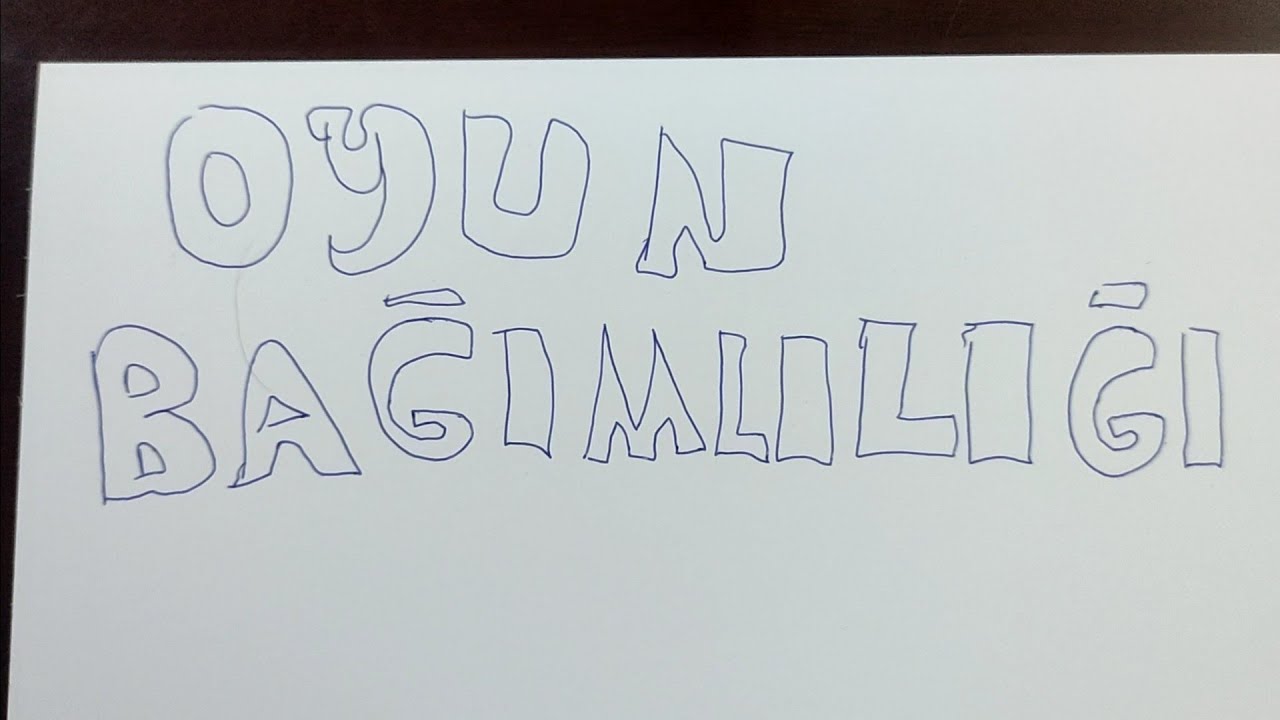 OYUN
BAĞIMLILIĞI